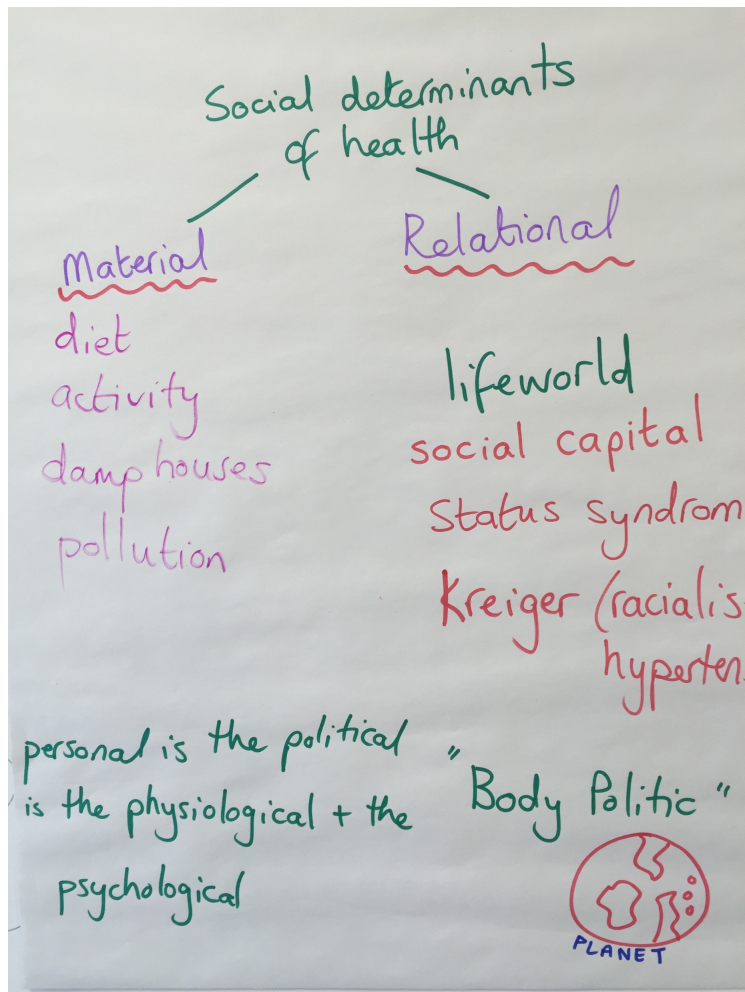 Social determinants
of health
Material
diet
activity
damp houses
pollution
Relational
lifeworld
social capital
Status syndrom
Kreiger (racialis
hyperten
personal is the political
is the physiological + the
psychological
" Body Politic "
PLANET